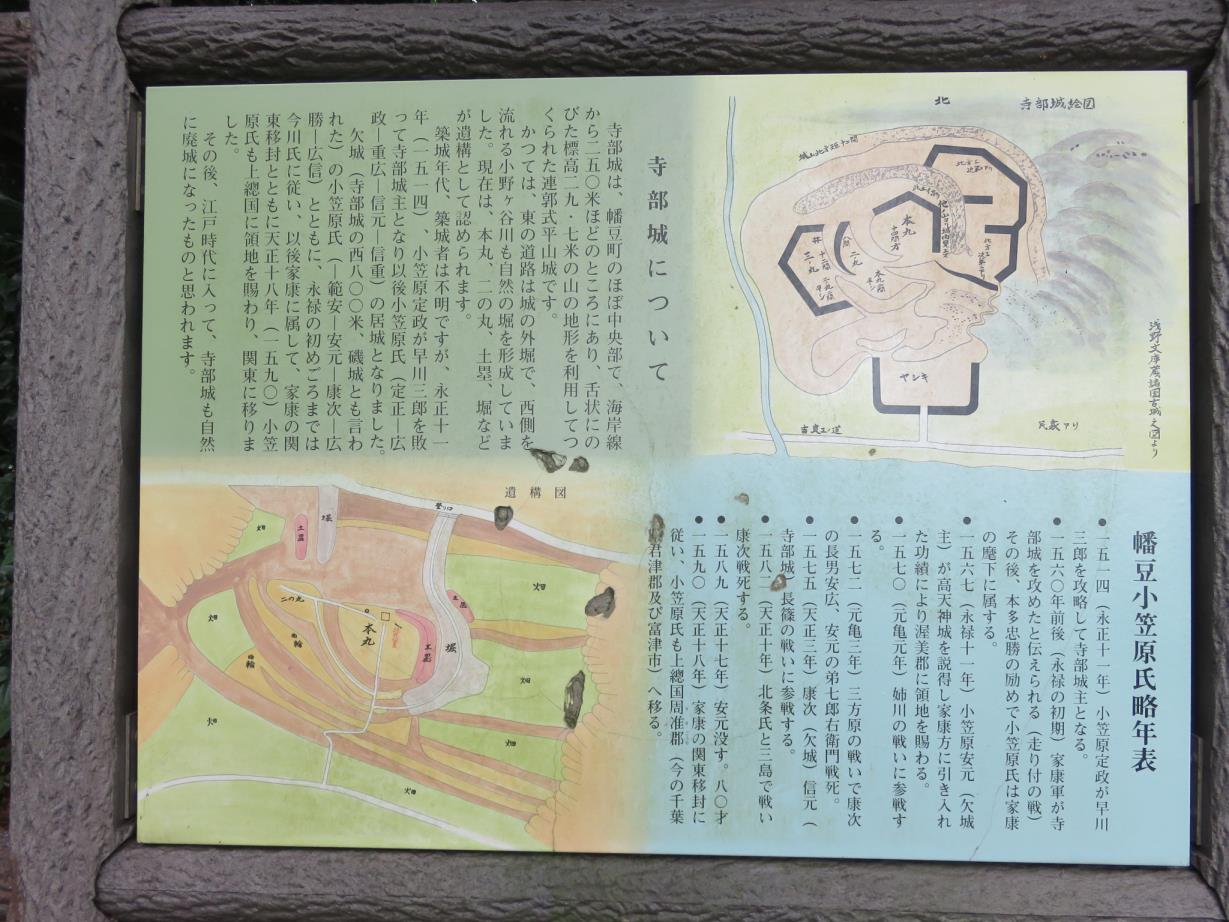 寺部城絵図
北
浅野文庫蔵諸国古城之図より
本丸
二ノ丸
三ノ丸
井
ヤシキ
吉良エノ道
民家アリ
寺部城について
寺部城は、幡豆町のほぼ中央部で、海岸線
から二五〇米ほどのところにあり、舌状にの
びた標高二九・七米の山の地形を利用してつ
くられた連郭式平山城です。
かつては、東の道路は城の外堀で、西側を
流れる小野ヶ谷川も自然の堀を形成していま
した。現在は、本丸、二の丸、土塁、堀など
が遺構として認められます。
築城年代、築城者は不明ですが、永正十一
年（一五一四）、小笠原定政が早川三郎を敗
って寺部城主となり以後小笠原氏（定正―広
政―重広―信元―信重）の居城となりました。
欠城（寺部城の西八〇〇米、磯城とも言わ
れた）の小笠原氏（―範安―安元―康次―広
勝―広信）とともに、永禄の初めごろまでは
今川氏に従い、以後家康に属して、家康の関
東移封とともに天正十八年（一五九〇）小笠
原氏も上總国に領地を賜わり、関東に移りま
した。
その後、江戸時代に入って、寺部城も自然
に廃城になったものと思われます。
幡豆小笠原氏略年表
●一五一四（永正十一年）小笠原定政が早川
三郎を攻略して寺部城主となる。
●一五六〇年前後（永禄の初期）家康軍が寺
部城を攻めたと伝えられる（走り付の戦）
その後、本多忠勝の励めで小笠原氏は家康
の麾下に属する。
●一五六七（永禄十一年）小笠原安元（欠城
主）が高天神城を説得し家康方に引き入れ
た功績により渥美郡に領地を賜わる。
●一五七〇（元亀元年）姉川の戦いに参戦す
る。
●一五七二（元亀三年）三方原の戦いで康次
の長男安広、安元の弟七郎右衛門戦死。
●一五七五（天正三年）康次（欠城）信元（
寺部城）長篠の戦いに参戦する。
●一五八二（天正十年）北条氏と三島で戦い
康次戦死する。
●一五八九（天正十七年）安元没す。八〇才
●一五九〇（天正十八年）家康の関東移封に
従い、小笠原氏も上總国周准郡（今の千葉
君津郡及び富津市）へ移る。
遺構図
登り口
堀
土塁
畑
二の丸
本丸
曲輪
曲輪
土塁
土塁
堀
畑
畑
畑
畑
畑
畑